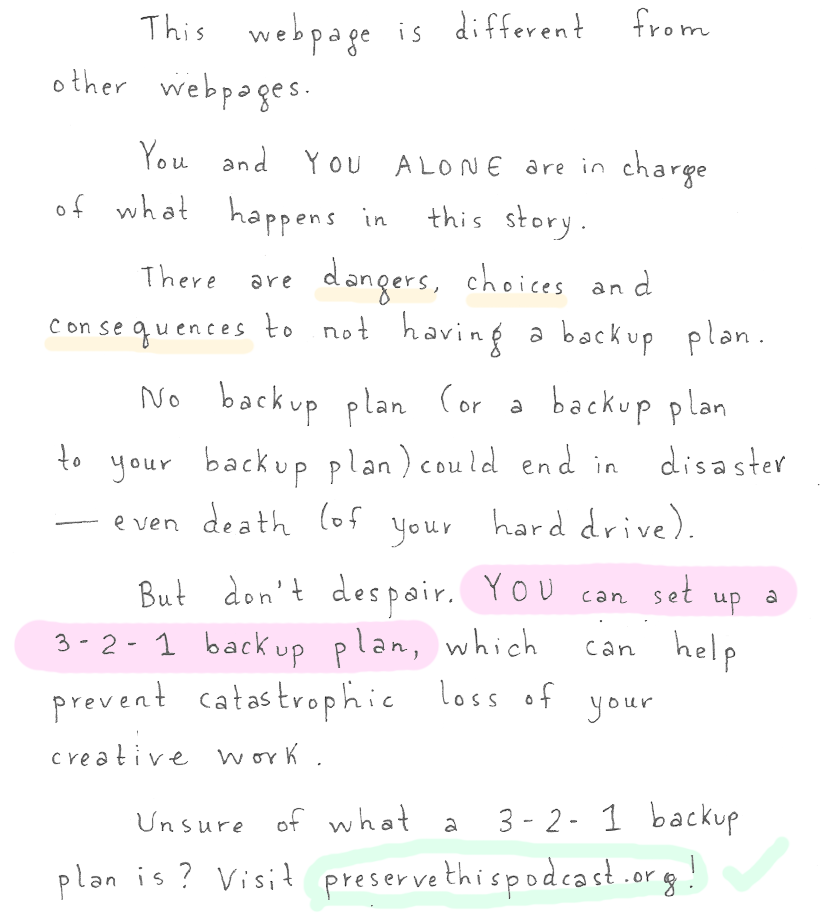 This webpage is different from
other webpages.
You and YOU ALONE are in charge
of what happens in this story.
There are dangers, choices and
consequences to not having a backup plan.
No backup plan (or a backup plan
to your backup plan) could end in disaster
— even death (of your hard drive).
But don't despair. YOU can set up a
3-2-1 backup plan, which can help
prevent catastrophic loss of your
creative work.
Unsure of what a 3-2-1 backup
plan is? Visit preservethispodcast.org!